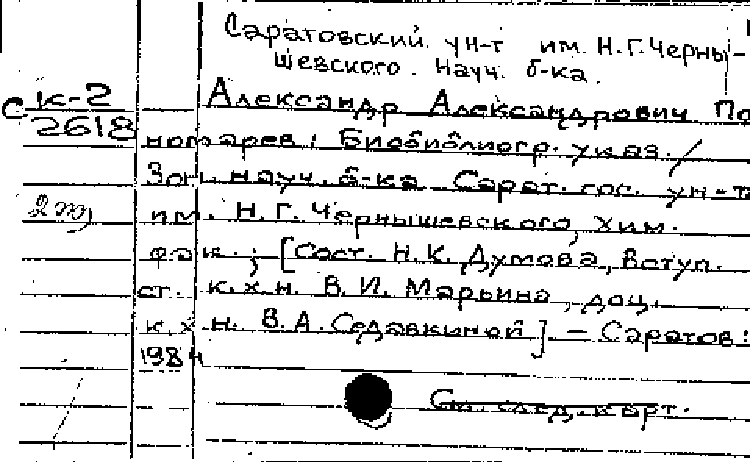 Саратовский ун-т им. Н.Г.Черны-
шевского. Науч. б-ка.
С к-2
2618
Александр Александрович По
номарев: Биобиблиогр. указ./
Зон. науч. б-ка Сарат. гос. ун-т
им. Н.Г.Чернышевского, Хим.
фак.; [Сост. Н.К.Думова, вступ.
ст. к.х.н. В.И.Марьина, доц.
к.х.н. В.А.Седавкиной] – Саратов:
1984
См. след. карт.